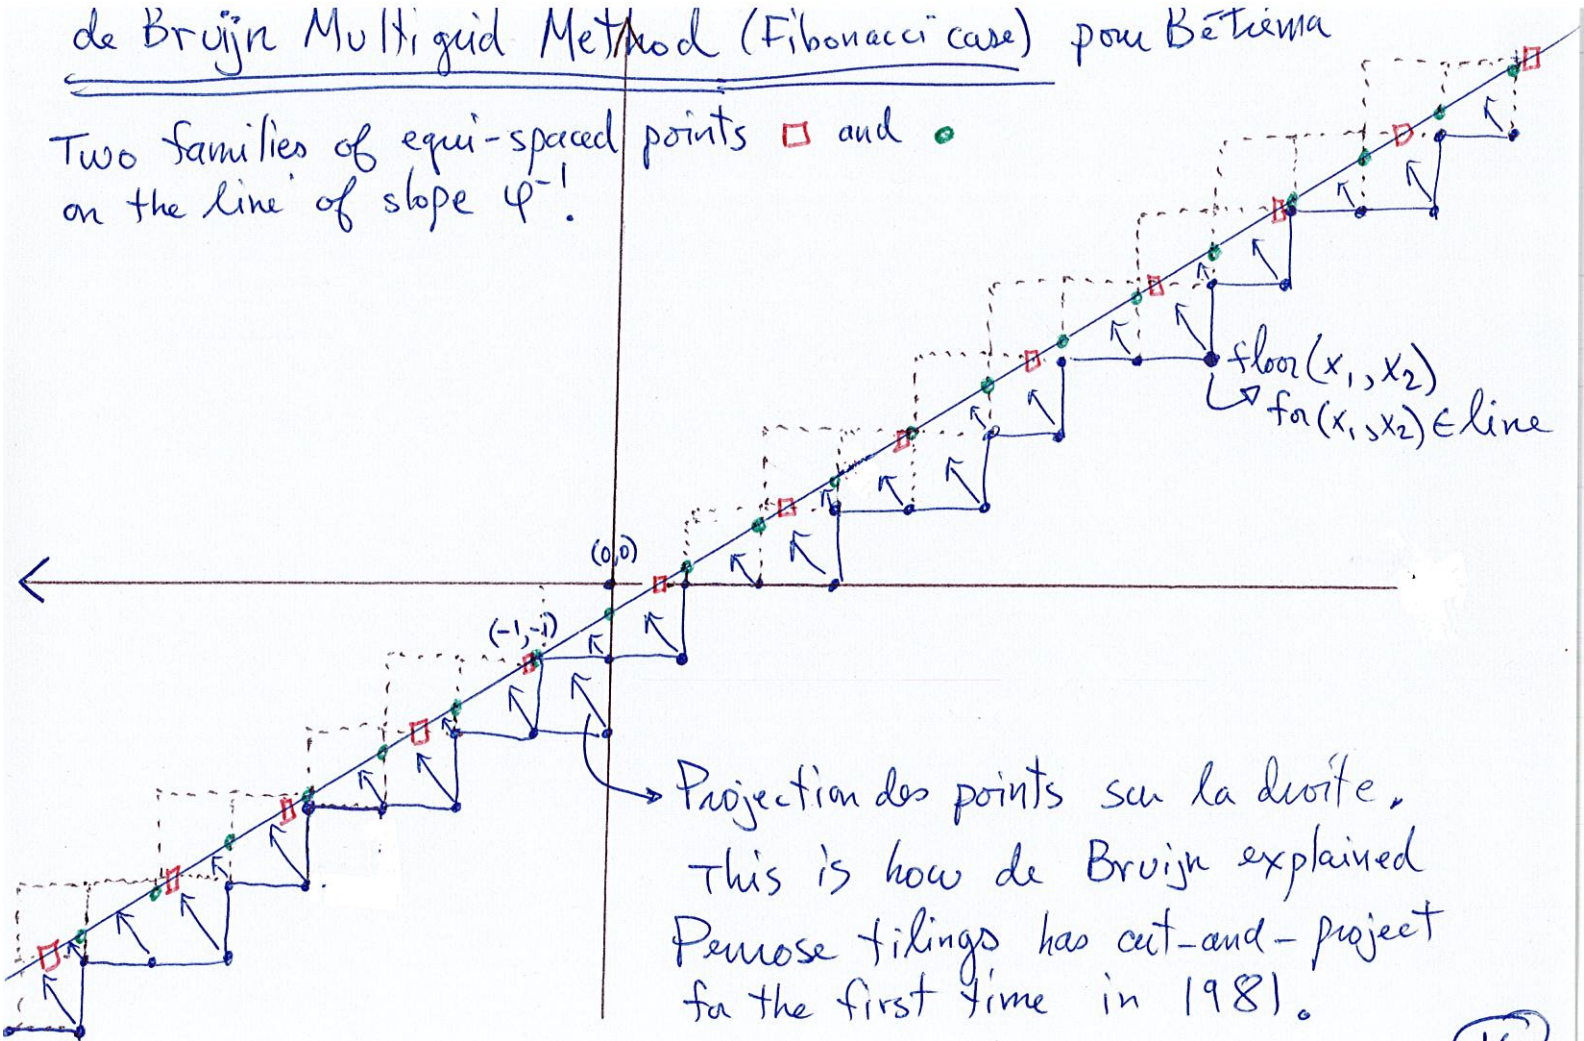 de Bruijn Multigrid Method (Fibonacci case) pour Bétréma
Two families of equi-spaced points □ and •
on the line of slope φ⁻¹.
floor(x₁, x₂)
for (x₁, x₂) ∈ line
(0,0)
(-1,-1)
Projection des points sur la droite.
This is how de Bruijn explained
Penrose tilings has cut-and-project
for the first time in 1981.